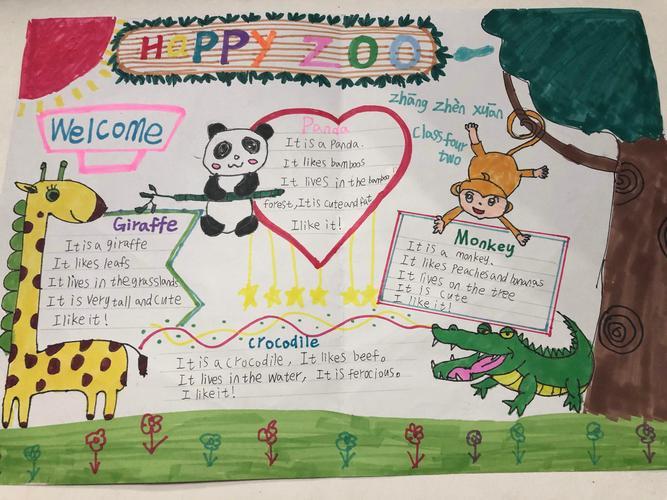 HAPPY ZOO
zhāng zhèn xuān
Class four
two
Welcome
Panda
It is a Panda.
It likes bamboos
It lives in the bamboo
forest, It is cute and fat
I like it!
Giraffe
It is a giraffe
It likes leafs
It lives in the grasslands
It is very tall and cute
I like it!
Monkey
It is a monkey.
It likes Peaches and bananas
It lives on the tree
It is cute
I like it!
crocodile
It is a crocodile, It likes beef。
It lives in the water, It is ferocious。
I like it!